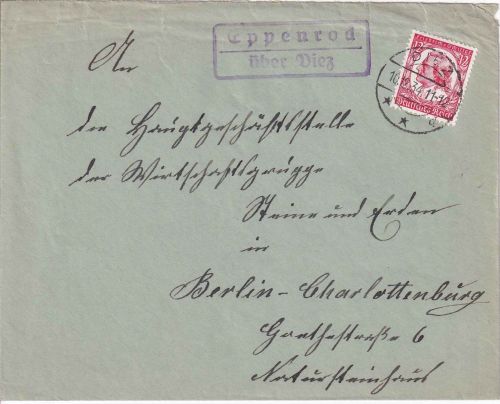 Eppenrod
über Diez
12 12
Deutsches Reich
DIEZ
11-12
An
die Hauptgeschäftsstelle
der Wirtschaftsgruppe
Steine und Erden
in
Berlin-Charlottenburg
Goethestraße 6
Natursteinhaus